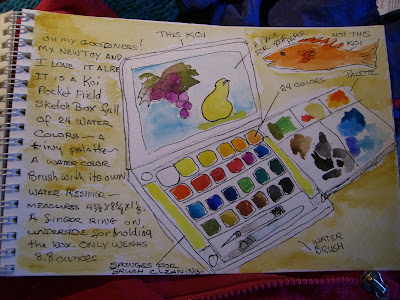 OH MY GOODNESS!
MY NEW TOY AND
I LOVE IT ALRE
IT IS A Koi
Pocket Field
Sketch Box full
OF 24 WATER
COLORS - A
tiny palette -
A WATER COLOR
Brush with its own
WATER
MEASURES
A finger RING ON
UNDERSIDE for holding
the box. ONLY WEIGHS
8.8 OUNCES
THIS KOI
A PLACE
FOR
NOT THIS
KOI
24 COLORS
PALETTE
SPONGES FOR
BRUSH CLEANING
WATER
BRUSH